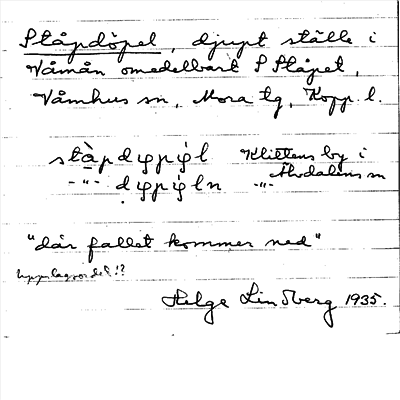 Ståpdöpel, djupt ställe i
Våmån omedelbart S Ståpet,
Våmhus sn, Mora tg, Kopp. l.
stàpdφpφ̀l Klittens by i
-"- dφpφ̀ln -"- Älvdalens sn
"där fallet kommer ned"
Helge Lindberg 1935.